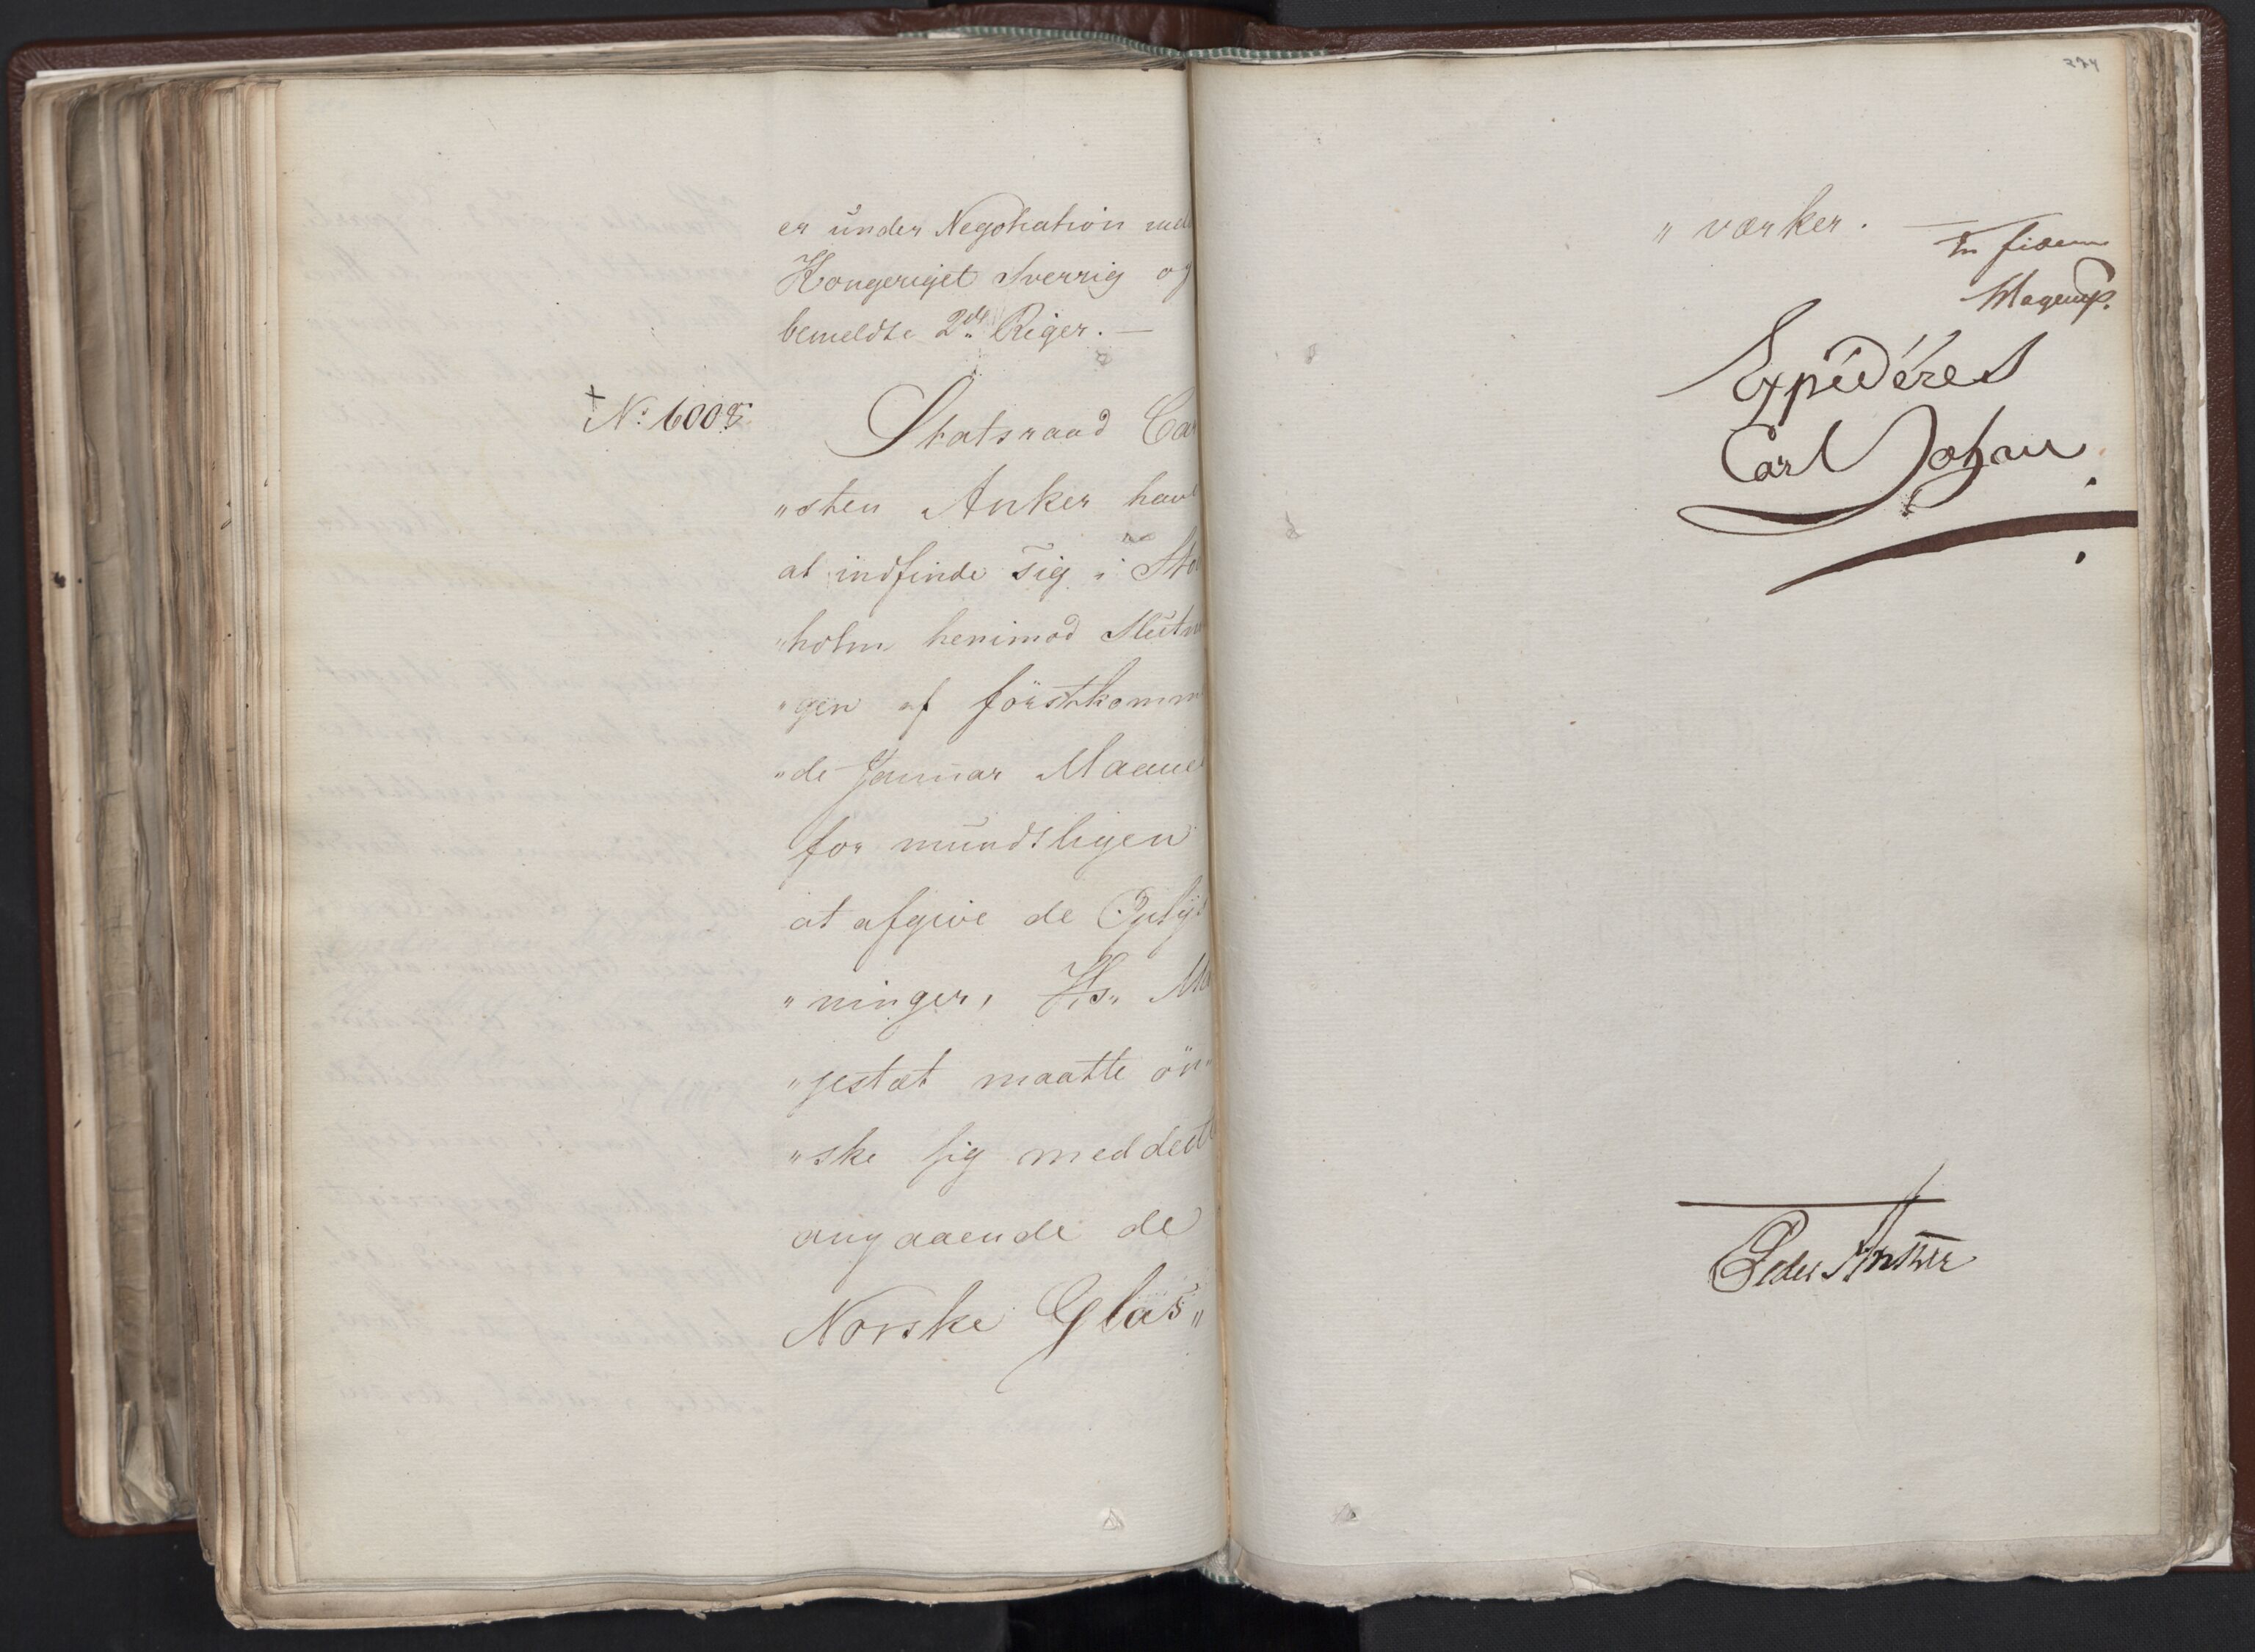 er under Negotiation mell
Kongeriget Sverrig og
bemeldte 2de Riger. —
+ No 6008
Statsraad Car
"sten Anker hav
at indfinde sig i Sto
"holm henimod Slutni
"gen af förstkomm
"de Januar Maane
for mundtligen
at afgive de Oplys
"ninger, Hs. Ma
"jestæt maatte ön"
"ske sig meddelt
angaaende de
Norske Glas"
274
"værker. —
In fidem
Expédéres
Carl Johan
Peder Anker